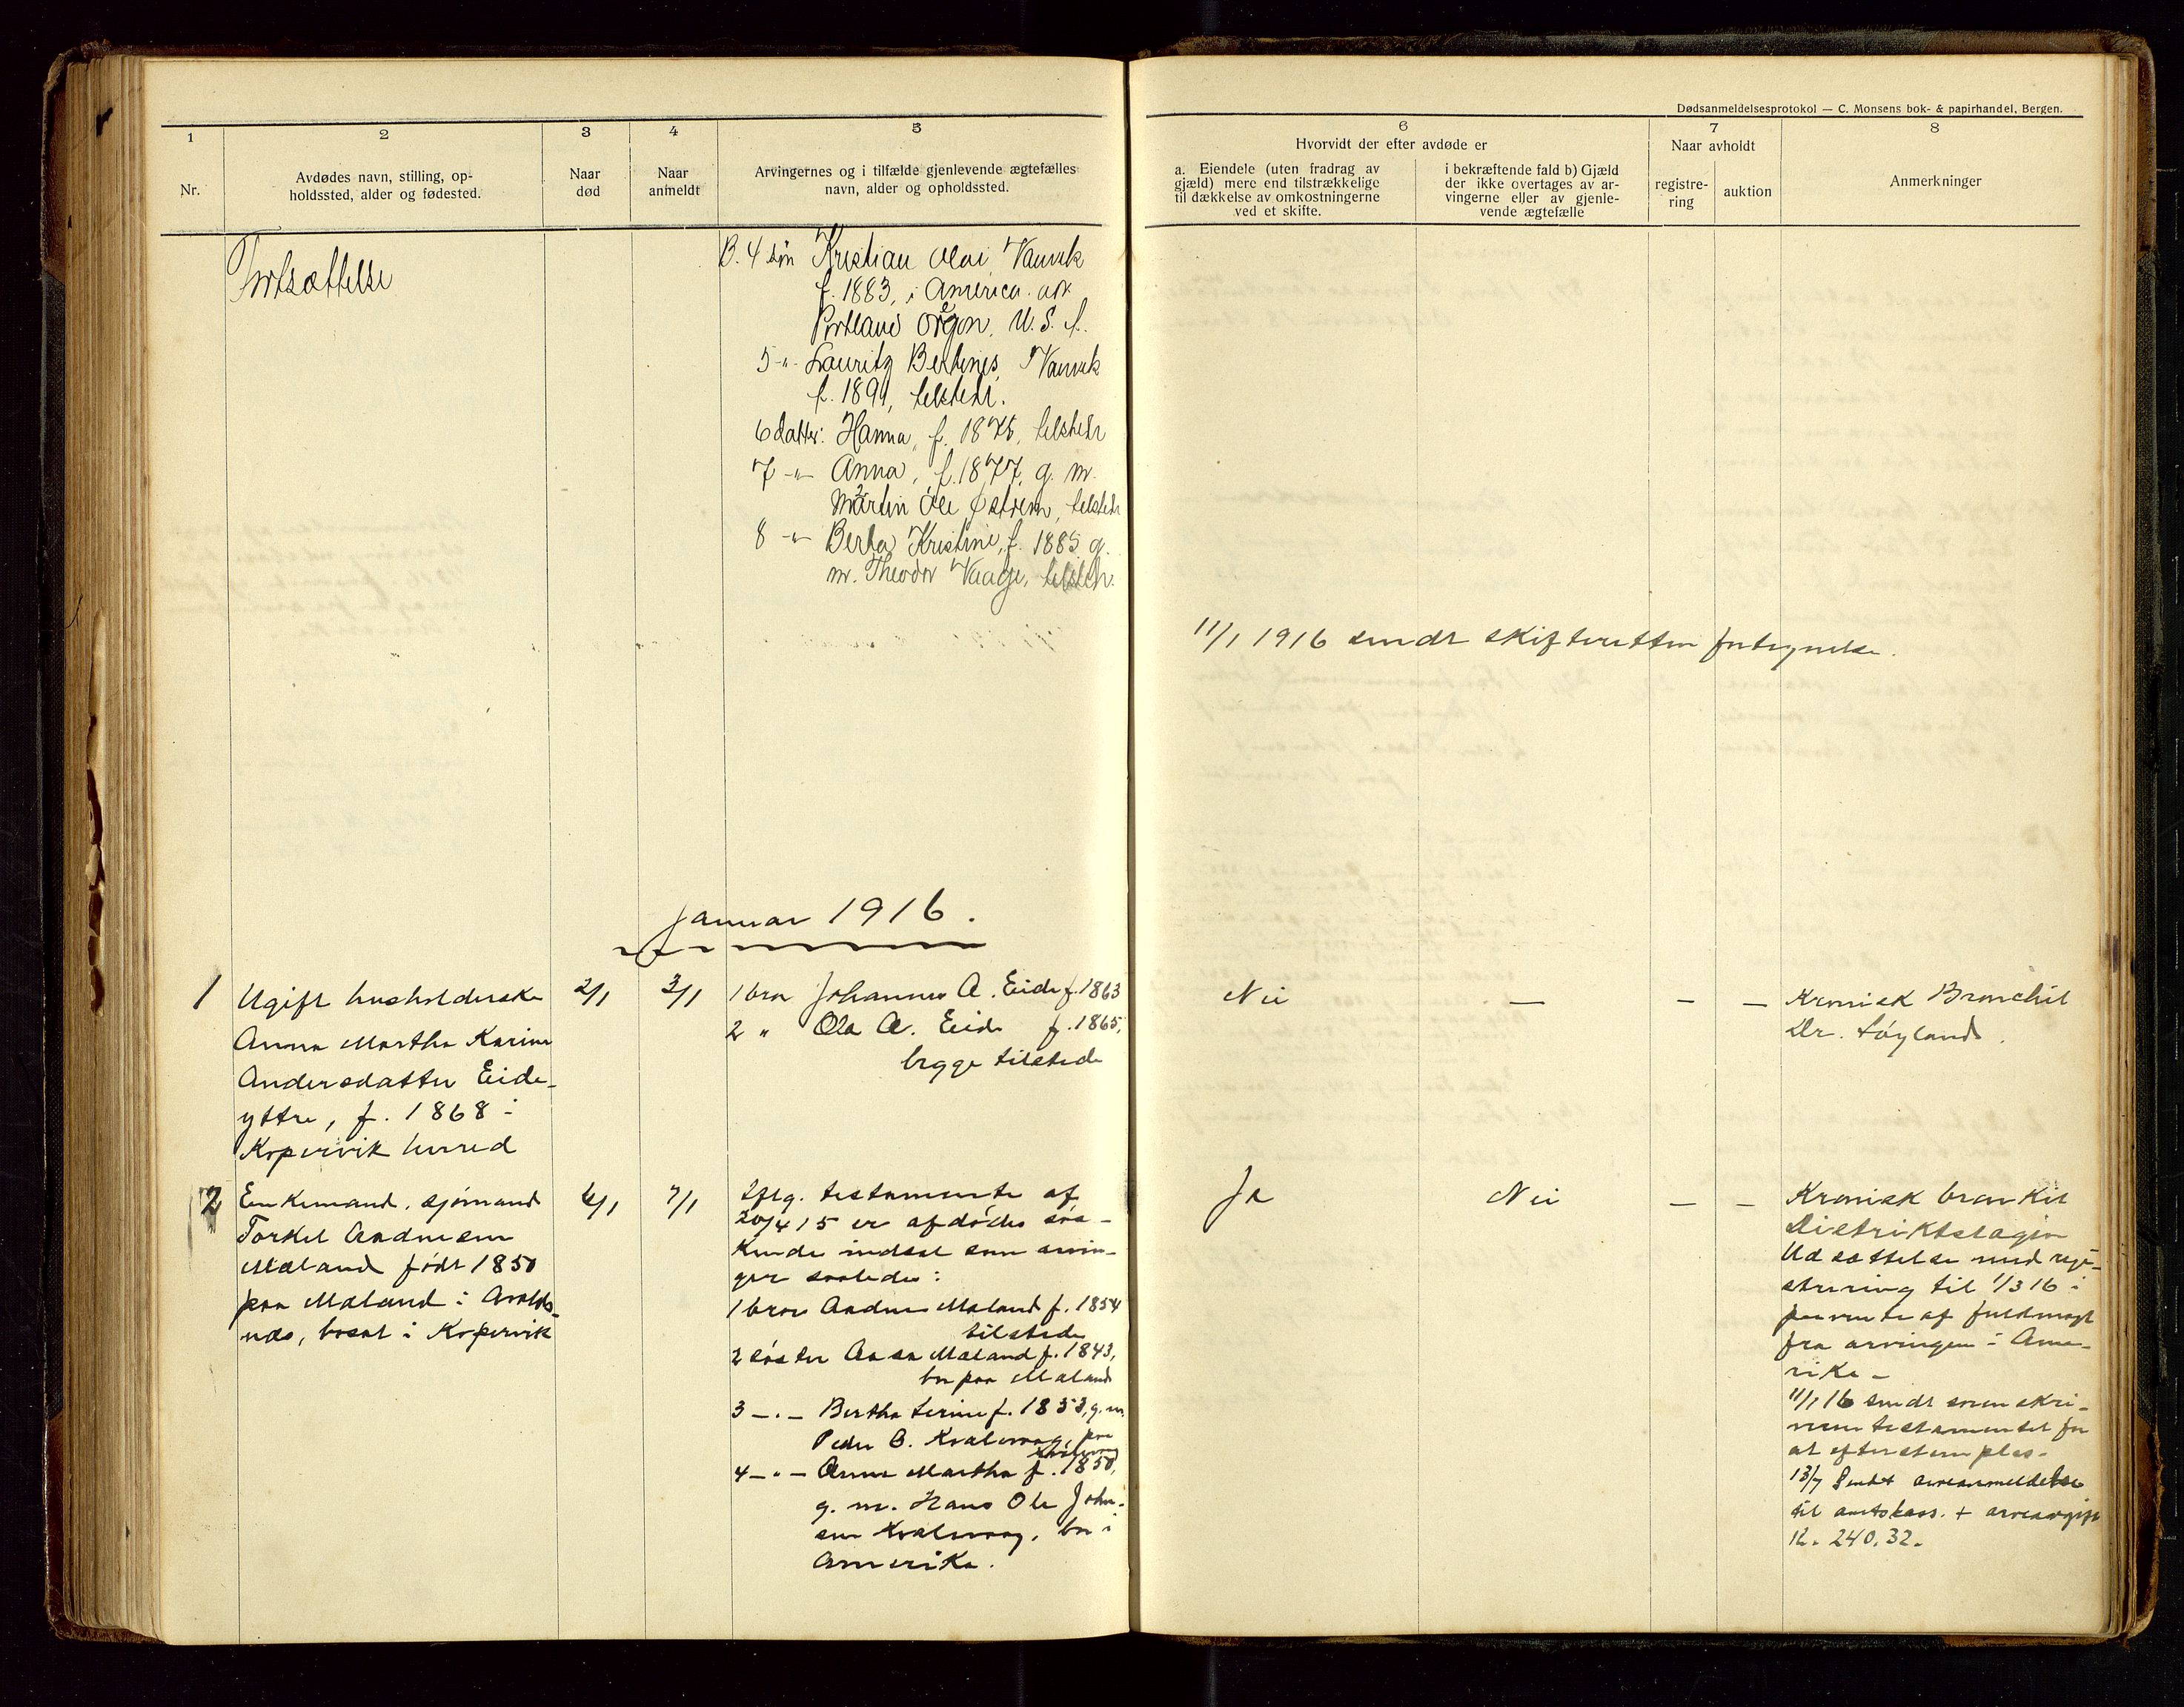 Dødsanmeldelsesprotokol — C. Monsens bok- & papirhandel, Bergen.
1
Nr.
2
Avdødes navn, stilling, op-
holdssted, alder og fødested.
3
Naar
død
4
Naar
anmeldt
5
Arvingernes og i tilfælde gjenlevende ægtefælles
navn, alder og opholdssted.
6
Hvorvidt der efter avdøde er
a. Eiendele (uten fradrag av
gjæld) mere end tilstrækkelige
til dækkelse av omkostningerne
ved et skifte.
i bekræftende fald b) Gjæld
der ikke overtages av ar-
vingerne eller av gjenle-
vende ægtefælle
7
Naar avholdt
registre-
ring
auktion
8
Anmerkninger
Fortsættelse
B. 4 søn Kristian Olai Vanvik
f. 1883, i America. adr
Portland Oregon. U.S.A.
5 -"- Lauritz Bertines Vanvik
f. 1891, tilstede.
6 datter: Hanna, f. 1875, tilstede
7 -"- Anna, f. 1877, g. m.
Martin Ole Østrem, tilstede
8 -"- Berta Kristine, f. 1885 g.
m. Theodor Vaage, tilstede.
11/1 1916 sendt skifteretten fortegnelse.
Januar 1916.
1
Ugift husholderske
Anna Martha Karine
Andersdatter Eide-
yttre, f. 1868 i
Kopervik herred
2/1
3/1
1 bror Johannes A. Eide f. 1863
2 " Ola A. Eide f. 1865,
begge tilstede
Nei
—
—
—
Kronisk Bronchit
Dr. Løyland.
2
Enkemand, sjømand
Torkel Aadnesen
Mæland født 1850
paa Mæland i Avalds-
nes, bosat i Kopervik
6/1
7/1
Iflg. testamente af
20/4 15 er afdødes søs-
kende indsat som arvin-
ger saaledes:
1 bror Aadne Mæland f. 1854
tilstede
2 søster Aasa Mæland f. 1843,
bor paa Mæland
3 -"- Bertha Serine f. 1853, g. m.
Peder B. Kvalevaag, paa
Kvalevaag
4 -"- Anne Martha f. 1850,
g. m. Hans Ole John-
sen Kvalevaag, bor i
Amerika.
Ja
Nei
—
—
Kronisk bronkit
Distriktslægen
Udsættelse med regi-
strering til 1/3 16 i
paavente af fuldmagt
fra arvingen i Ame-
rika -
11/1 16 sendt sorenskri-
veren testamentet for
at efterstemples.
13/7 Sendt arveanmeldelse
til amtskass. + arveavgift
K. 240.32.